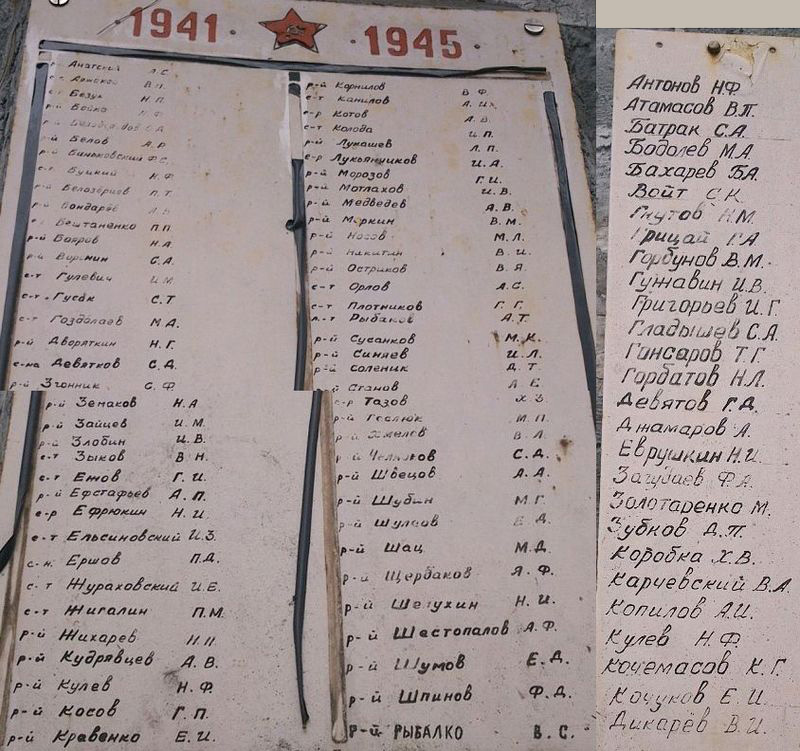 1941 · 1945 ·
р-й Анатский А.С.
В.П.
Безух Н.П.
р-й Бойко Н.Ф.
р-й Белов А.Р.
р-й Баньковский Ф.С.
с-т Буцкий Н.Ф.
р-й Белозерцев П.Т.
р-й Бондарев
с-т Бештаненко П.П
р-й Бояров Н.А.
р-й Воронин С.А.
с-т Гулевич И.М.
с-т. Гусак С.Т
с-т Гоздолаев М.Д.
р-й Дворяткин Н.Г.
с-на Девятков С.Д.
р-й Згонник С.Ф.
р-й Земаков Н.А
р-й Зайцев И.М.
р-й Злобин И.В.
с-т Зыков В.Н.
с-т Ежов Г.И.
р-й Ефстафьев А.П.
е-р Ефрюкин Н.И.
с-т Ельсиновский И.З.
с-н. Ершов П.Д.
с-т Жураховский И.Е.
с-т Жигалин П.М.
р-й Жихарев И.П.
р-й Кудрявцев А.В.
р-й Кулев Н.Ф.
р-й Косов Г.П.
р-й Кравенко Е.И.
р-й Корнилов В.Ф.
с-т Капилов А.И.
е-р Котов А.В.
с-т Колода И.П.
р-й Лукашев Л.П.
е-р Лукьянчиков И.А.
р-й Морозов Г.И.
р-й Мотлахов И.В.
р-й Медведев А.В.
р-й Меркин В.М.
р-й Носов М.Л.
р-й Никитин В.И.
р-й Остриков В.Я.
с-т Орлов А.С.
с-т Плотников Г.Г.
л-т Рыбаков А.Т.
р-й Сусанков М.К.
р-й Синяев И.Л.
р-й Соленик Д.Т.
р-й Станов А.Е.
с-р Тазов Х.З.
р-й Теслюк М.П.
р-й Хмелов В.Л.
р-й Челноков С.Д.
р-й Швецов А.А.
р-й Шубин М.Г.
р-й Е.Д.
р-й Шац М.Д.
р-й Щердаков Я.Ф.
р-й Шегухин Н.И.
р-й Шестопалов А.Ф.
р-й Шумов Е.Д.
р-й Шпинов Ф.Д.
р-й РЫБАЛКО В.С.
Антонов Н.Ф.
Атамасов В.П.
Батрак С.А.
Бодолев М.А.
Бахарев Б.А.
Войт С.К.
Гнутов Н.М.
Грицай Г.А.
Горбунов В.М.
Гужавин И.В.
Григорьев И.Г.
Гладышев С.А.
Гонсаров Т.Г.
Горбатов Н.Л.
Девятов Г.Д.
Джамаров А.
Еврушкин Н.И.
Загудаев Ф.А.
Золотаренко М.
Зубков Д.П.
Коробка Х.В.
Карчевский В.А.
Копилов А.И.
Кулев Н.Ф.
Кочемасов К.Г.
Кочуков Е.И.
Дикарев В.И.